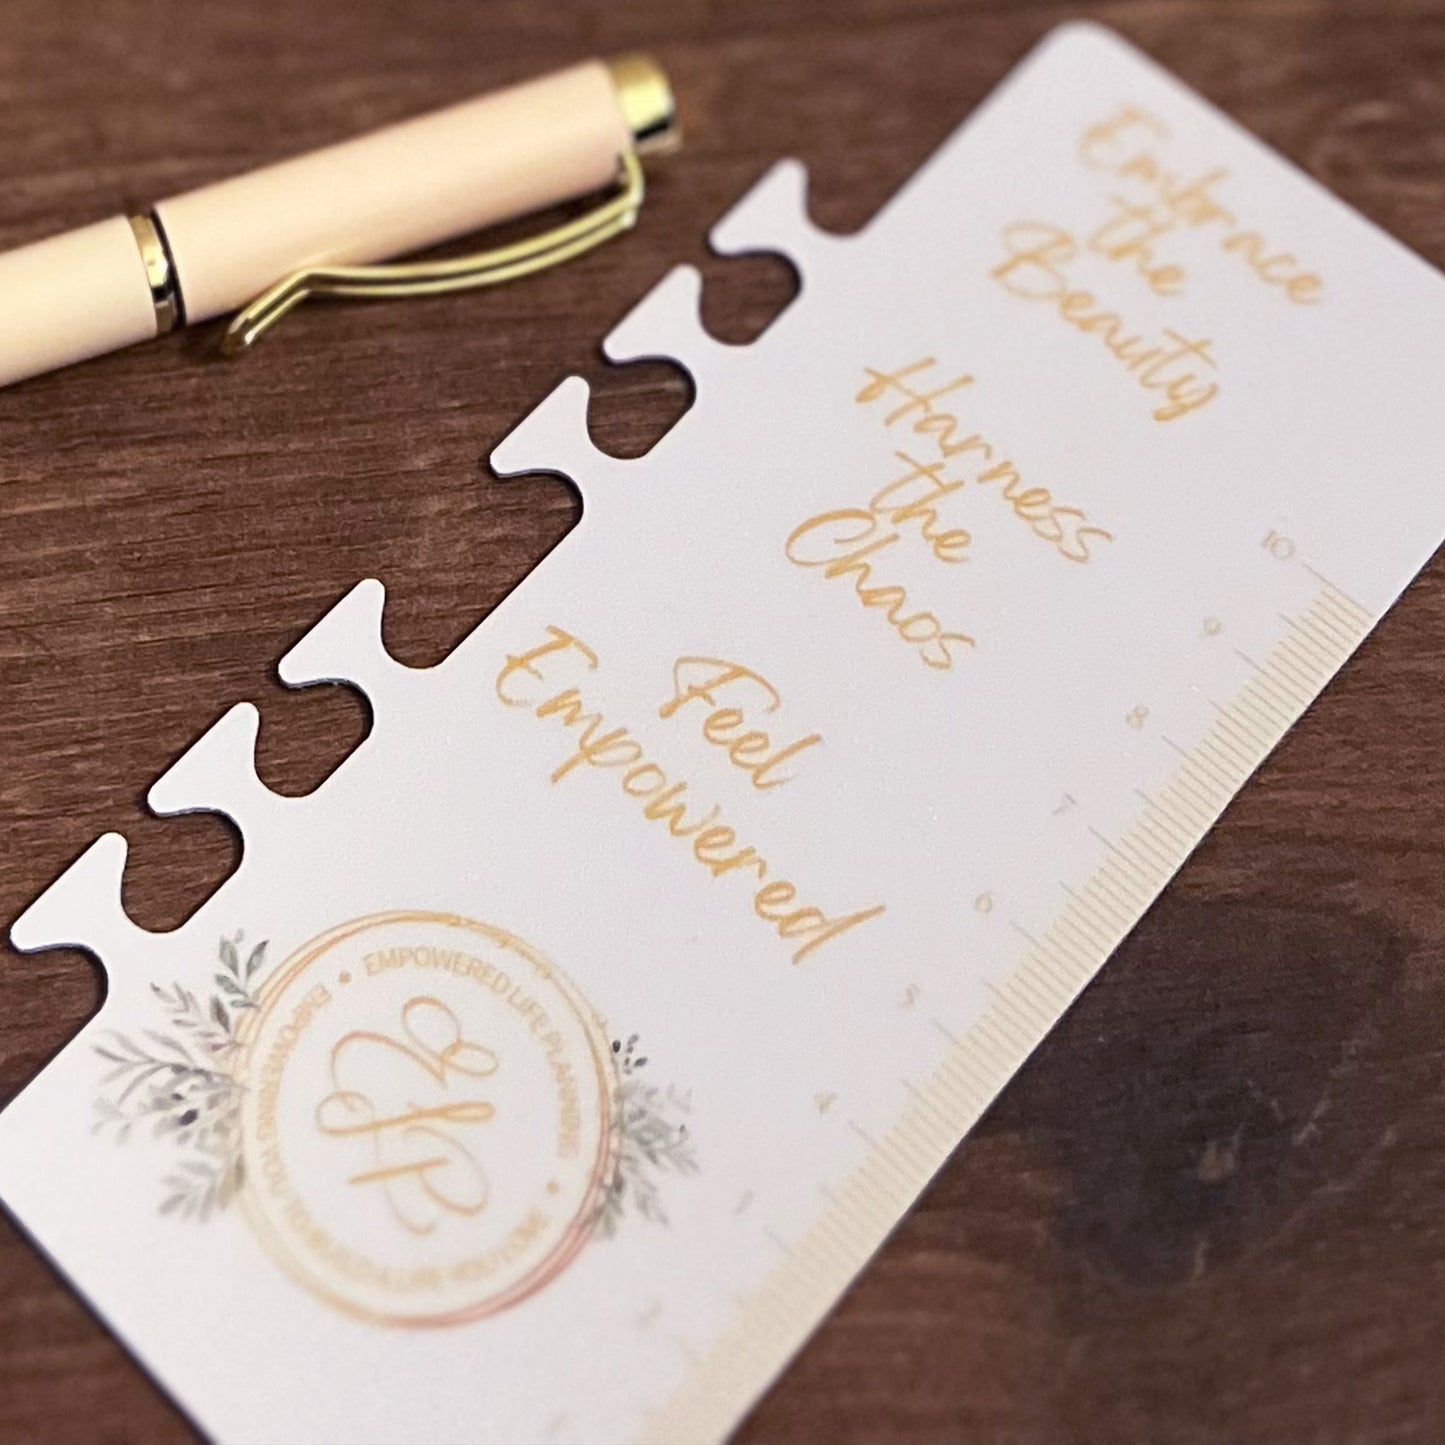 Embrace
the
Beauty
Harness
the
Chaos
Feel
Empowered
EMPOWERED LIFE PLANNING
ELP
10
9
8
7
6
5
4
3
2
1